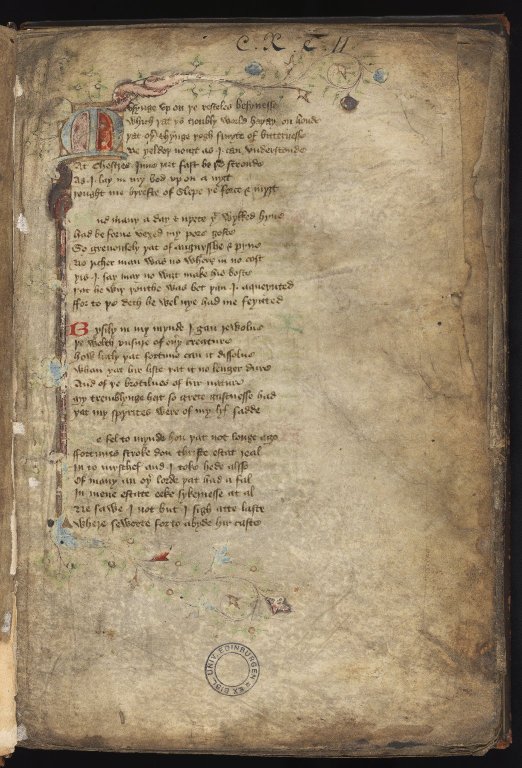 C. R. T. 11
Mvsynge vp on ye resteles besynesse
Which yat ye troubly world hayþ ay on honde
yat oyr thynge yogh fruyte of bitternesse
Ne yeldeþ nouȝt as I can vnderstonde
At Chestres Inne ryet fast be ye stronde
As I lay in my bed vp on a nyȝt
yought me byrefte of slepe ye force & myȝt
nd many a day & nyȝte yt wykked hyne
had be forne vexed my pore goste
So grevousely yat of anguysshe & pyne
No richer man was no where in no cost
yis I say may no wiȝt make his boste
yat he wiþ youthe was bet yan I aqueynted
ffor to ye deth he wel nye had me feynted
Bysily in my mynde I gan revolue
ye welth vnsure of euy creature
how lyȝtly yat fortune can it dissolue
Whan yat hir liste yat it no lenger dure
And of ye brotilnes of hir nature
My tremblynge hert so grete gastnesse had
yat my spyrites were of my lyf sadde
e fel to mynde hou yat not longe ago
ffortunes stroke don thriste estat real
In to myschef and I toke hede also
Of many an oyr lorde yat had a fal
In mene estate eeke sykernesse at al
Ne sawe I not but I sigh atte laste
Where sewerte for to abyde hir caste
EX BIBL. UNIV. EDINBURGEN